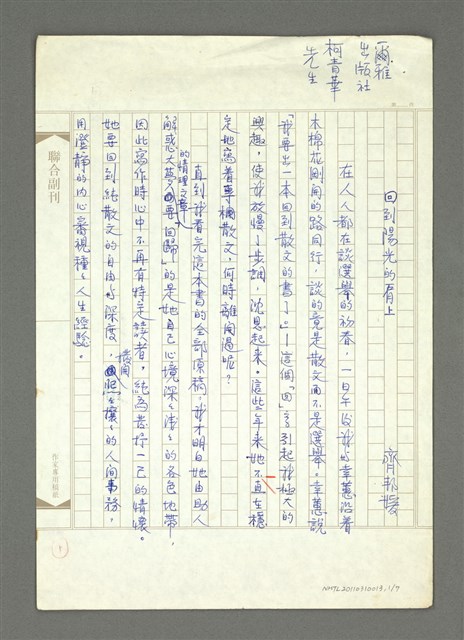 爾雅
出版社
柯青華
先生
回到陽光的肩上
齊邦媛
在人人都在談選舉的初春，一日午後我與幸蕙沿着
木棉花剛開的路同行，談的竟是散文而不是選舉。幸蕙說
「我要出一本回到散文的書了」——這個「回」字引起我極大的
興趣，使我放慢了步調，沈思起來。這些年來她不是在穩
定地寫着專欄散文，何時離開過呢？
直到我看完這本書的全部原稿，我才明白她由助人
解惑的情理文章大夢要「回歸」的是她自己心境深深淺淺的各色地帶，
因此寫作時心中不再有特定讀者，純為抒一己的情懷。
她要回到純散文的自由与深度，撥開塵壤的人間事務，
用澄靜的内心審視種種人生經驗。
聯合副刊
作家專用稿紙
1
NMTL20110310013, 1/7